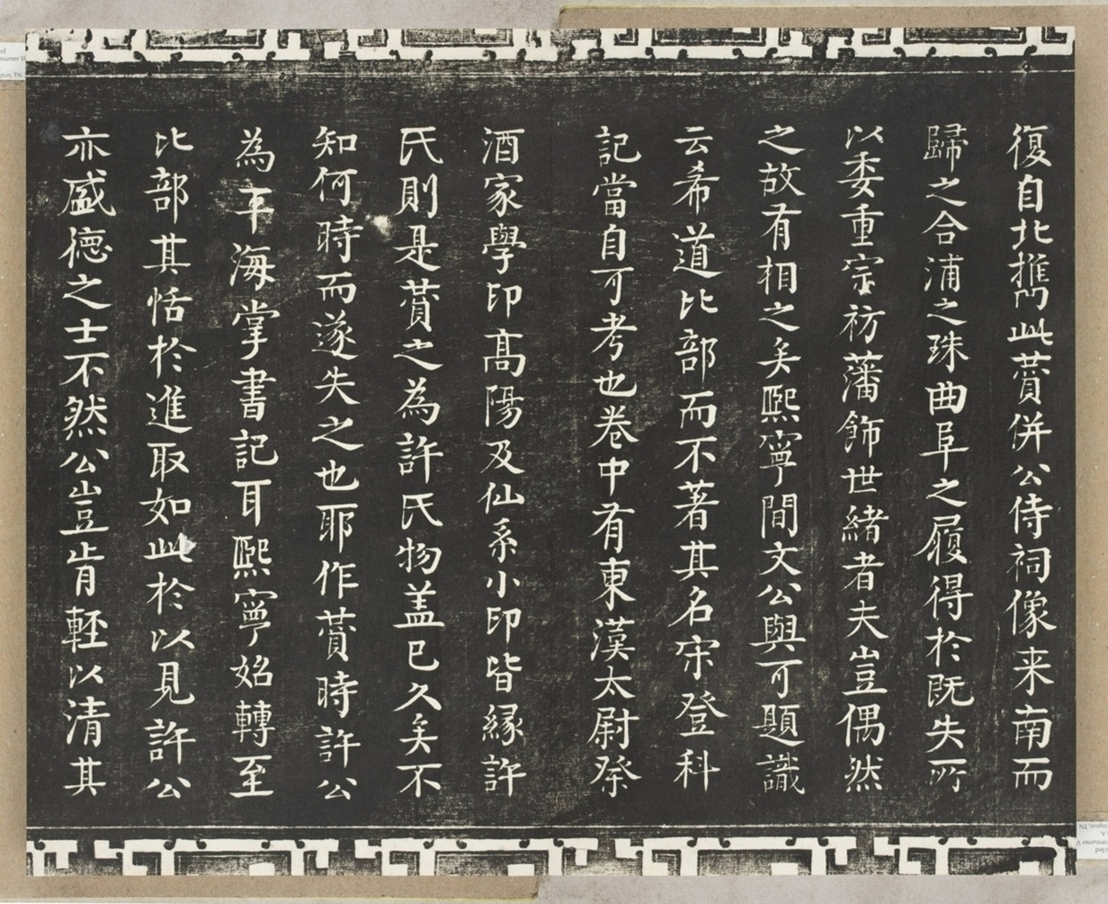 復自北攜此䝨併公侍祠像来南而
歸之合浦之珠曲阜之履得於既失所
以委重宗祊藩飾世緒者夫豈偶然
之故有相之矣熈寧間文公與可題識
云希道比部而不著其名宋登科
記當自可考也卷中有東漢太尉祭
酒家學印髙陽及仙系小印皆緣許
氏則是賛之為許氏物盖已久矣不
知何時而遂失之也耶作賛時許公
為平海掌書記耳熈寧始轉至
比部其恬於進取如此於以見許公
亦盛徳之士不然公豈肯輕以清其